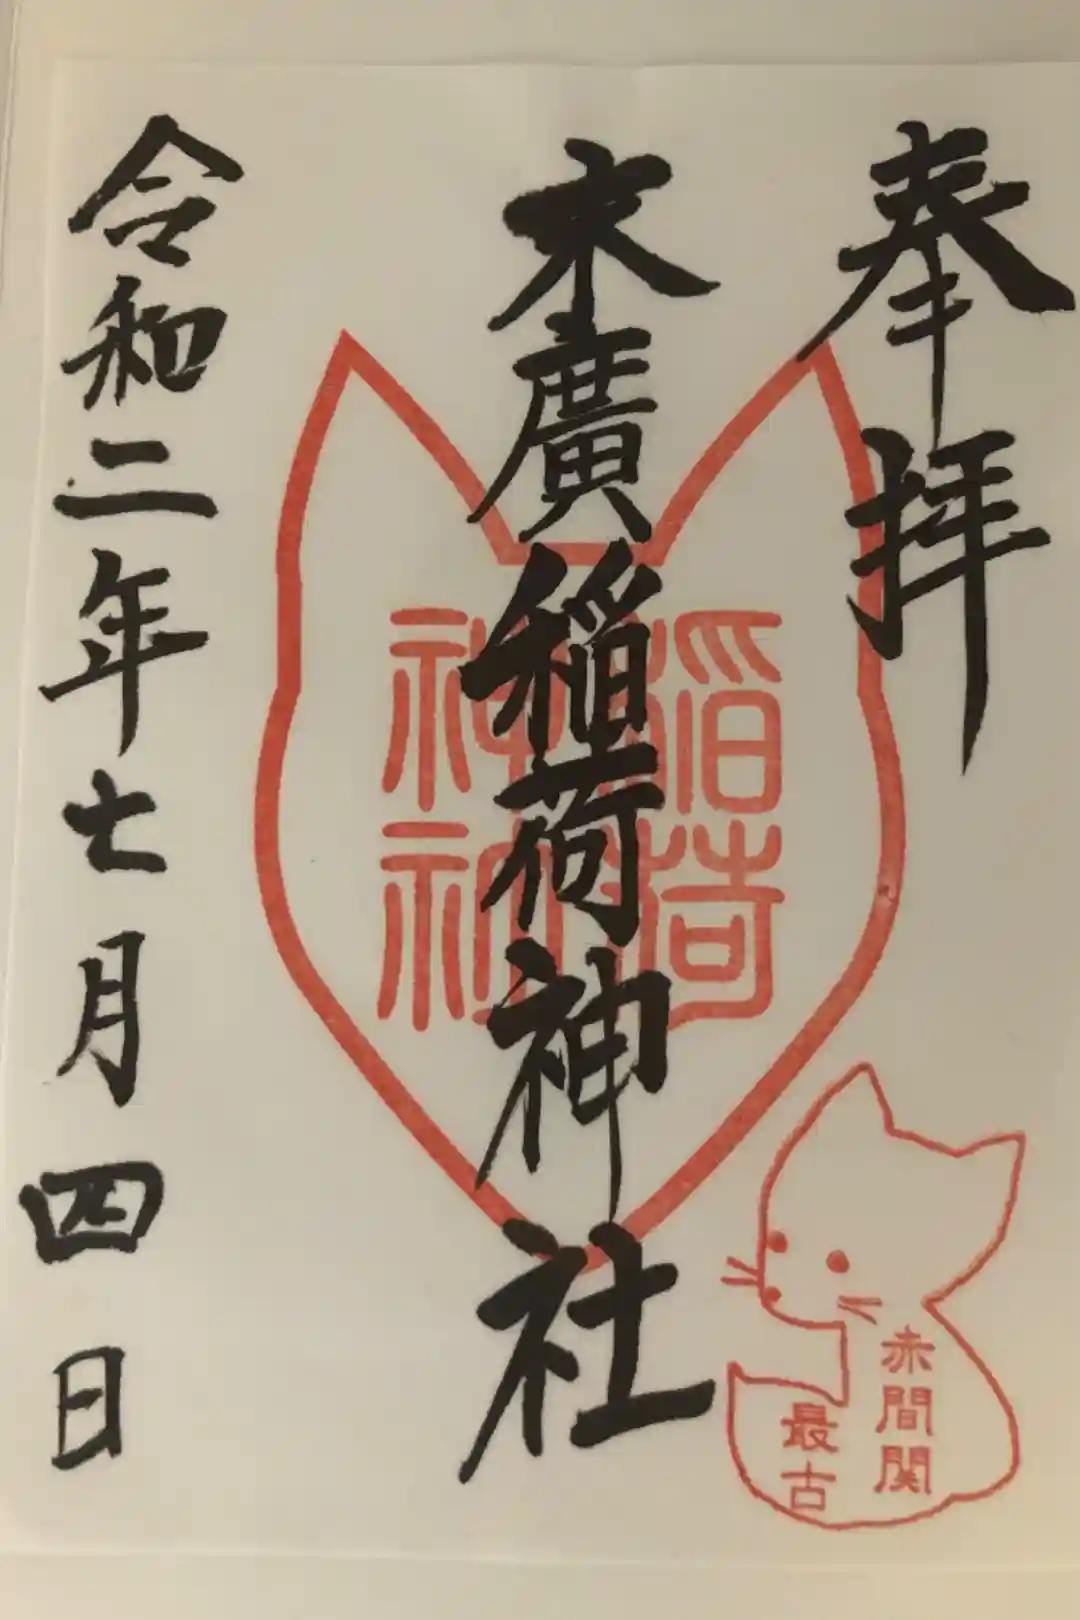 奉拝
末廣稲荷神社
令和二年七月四日
稲荷
神社
赤間関
最古